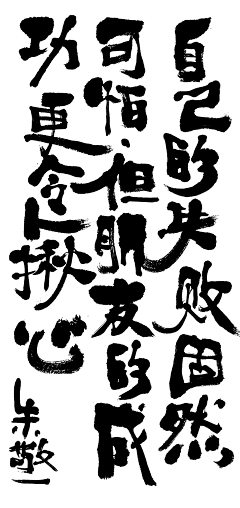 自己的失败固然
可怕,但朋友的成
功更令人揪心
朱敬一